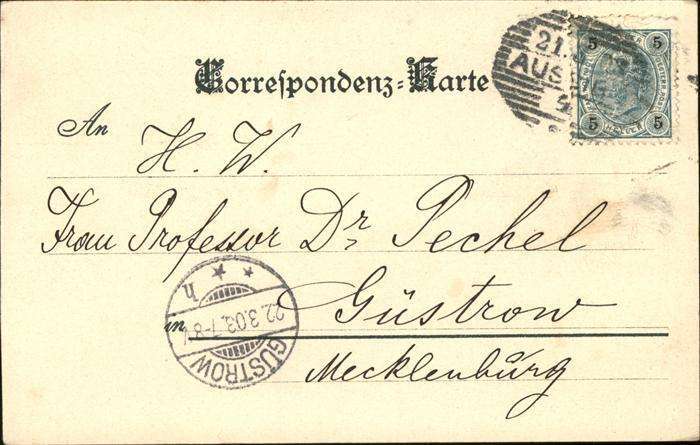 Correspondenz-Karte
An
H. W.
Frau Professor Dr. Pechel
in Güstrow
Mecklenburg
5 5
5 5
21.
AUS
GÜSTROW
22.3.03. 7-8 V
h